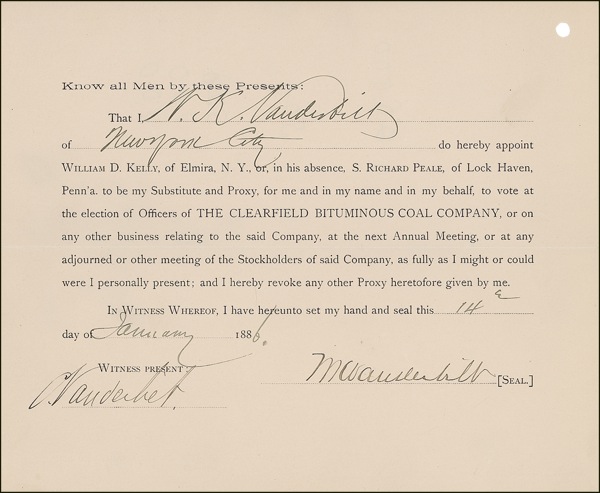 Know all Men by these Presents:
That I, W. K. Vanderbilt
of New York City, do hereby appoint
WILLIAM D. KELLY, of Elmira, N. Y., or, in his absence, S. RICHARD PEALE, of Lock Haven,
Penn'a. to be my Substitute and Proxy, for me and in my name and in my behalf, to vote at
the election of Officers of THE CLEARFIELD BITUMINOUS COAL COMPANY, or on
any other business relating to the said Company, at the next Annual Meeting, or at any
adjourned or other meeting of the Stockholders of said Company, as fully as I might or could
were I personally present; and I hereby revoke any other Proxy heretofore given by me.
IN WITNESS WHEREOF, I have hereunto set my hand and seal this 14
day of January 1886.
WITNESS PRESENT
WKVanderbilt [SEAL.]
C. Vanderbilt.